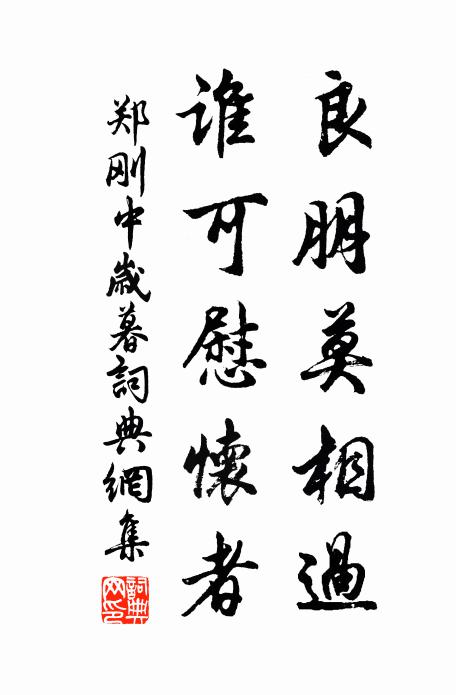 良朋莫相過
誰可慰懷者
郑刚中歲暮詞典網集
詞典网印